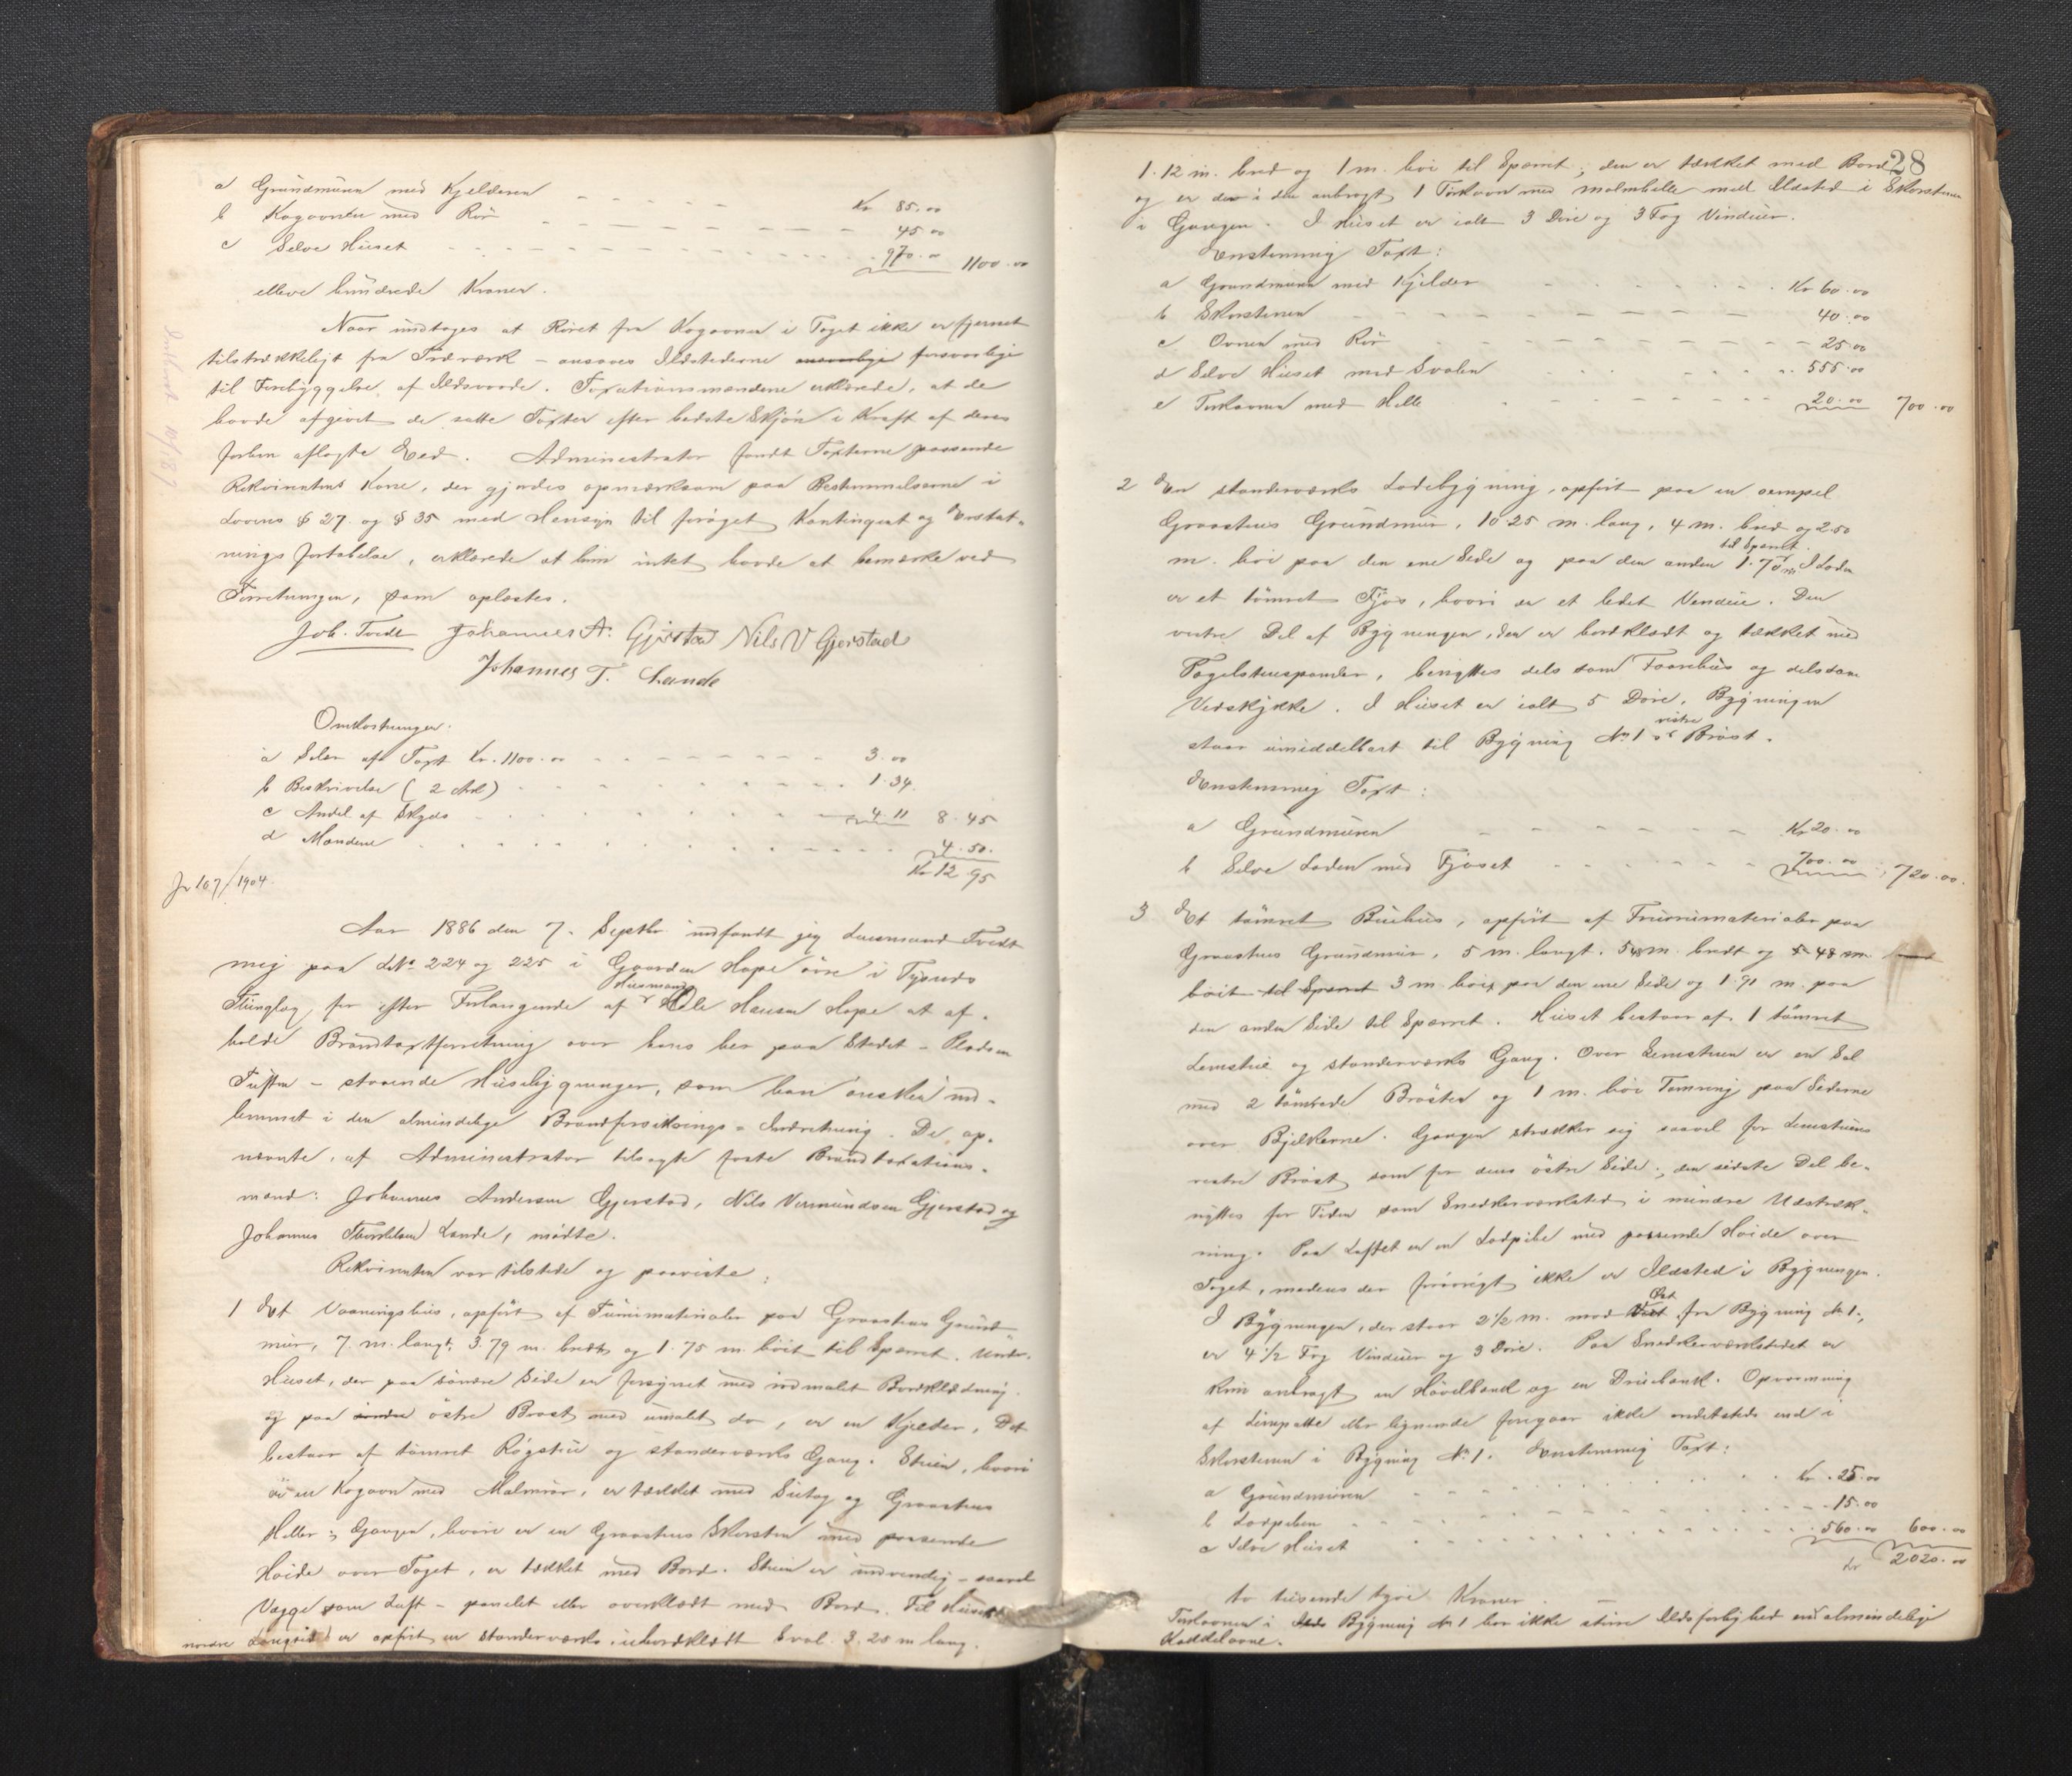 a Grundmuren med Kjelderen - - - - - Kr 85.00
b Kogovnen med Rør - - - - - 45.00
c Selve Huset - - - - - 970.00 1100.00
elleve hundrede Kroner.
Naar undtages at Røret fra Kogovnen i Taget ikke er fjernet
tilstrækkeligt fra Træværk - ansaaes Ildstederne ansvarlige forsvarlige
til Forebyggelse af Ildsvaade. Taxationsmændene erklærede, at de
havde afgivet de satte Taxter efter bedste Skjøn i Kraft af deres
forhen aflagte Eed. Administrator fandt Taxterne passende
Rekvirentens Kone, der gjordes opmærksom paa Bestemmelserne i
Lovens § 27. og § 35 med Hensyn til forøget Kontingent og Erstat-
nings Fortabelse, erklærede at hun intet havde at bemærke ved
Forretningen, som oplæstes.
Joh. Tvedt Johannes A. Gjerstad Nils V Gjerstad
Johannes T. Lande
Omkostninger:
a Selve af Taxt Kr. 1100.00 - - - - 3.00
b Beskrivelse (2 Ark) - - - - 1.34.
c Andel af Skyds - - - - 4.11 8.45
d Mændene - - - - 4.50.
Kr 12.95
Jr 167/1904.
Aar 1886 den 7. Septbr. indfandt jeg Lensmand Tvedt
mig paa LNo 224 og 225 i Gaarden Hope øvre i Tysnes
Husmand
Thinglag for efter Forlangende af Ole Hansen Hope at af-
holde Brandtaxtforretning over hans her paa Stedet - Pladsen
Tuften - staaende Husebygninger, som han ønsker ind-
lemmet i den almindelige Brandforsikrings-Indretning. De op-
nævnte, af Administrator tilsagte faste Brandtaxations-
mænd: Johannes Andersen Gjerstad, Nils Vermundsen Gjerstad og
Johannes Thorkelsen Lande, mødte.
Rekvirenten var tilstede og paaviste:
1 Et Vaaningshus, opført af Furumaterialer paa Graastens Grund-
mur, 7. m. langt, 3.79 m. bredt og 1.75 m. høit til Sparret. Under
Huset, der paa søndre Side er forsynet med indmalet Bordklædning
og paa søndre østre Brøst med umalet do, er en Kjelder. Det
bestaar af tømret Røgstue og standerværks Gang. Stuen, hvori
er en Kogovn med Malmrør, er tækket med Sutag og Graastens
Heller; Gangen, hvori er en Graastens Skorsten med passende
Høide over Taget, er tækket med Bord. Stuen er indvendig - saavel
Vægge som Luft - panelet eller overklædt med Bord. Til Husets
nordre Langside er opført en standerværks ubordklædt Sval. 3.20 m lang.
28
1.12 m. bred og 1 m. høi til Sparret; den er tækket med Bord
og er der i den anbragt 1 Tørkovn med malmhelle med Ildsted i Skorstenen
i Gangen. I Huset er ialt 3 Døre og 3 Fag Vinduer.
Enstemmig Taxt:
a Grundmuren med Kjelder - - - - Kr 60.00
b Skorstenen - - - - 40.00
c Ovnen med Rør - - - - 25.00
d Selve Huset med Svalen - - - - 555.00
e Tørkovnen med Helle - - - - 20.00 700.00
2 En standerværks Ladebygning, opført paa en simpel
Graastens Grundmur, 10.25 m. lang, 4 m. bred og 2.50
til Sparret
m. høi paa den ene Side og paa den anden 1.70 m. I Laden
er et tømret Fjøs, hvori er et lidet Vindue. Den
vestre Del af Bygningen, der er bordklædt og tækket med
Tagelstenspander, benyttes dels som Faarehus og dels som
Vedskjykke. I Huset er ialt 5 Døre. Bygningen
vestre
staar umiddelbart til Bygning No 1 Brøst.
Enstemmig Taxt:
a Grundmuren - - - - Kr 20.00
b Selve Laden med Fjøset - - - - 700.00 720.00.
3 Et tømret Buehus, opført af Furumaterialer paa
Graastens Grundmur, 5 m. langt. 5.48 m. bredt og 5.48 m.
høit til Sparret 3 m. høit paa den ene Side og 1.91 m. paa
den anden Side til Sparret. Huset bestaar af 1 tømret
Lemstue og standerværks Gang. Over Lemstuen er en Sal
med 2 tømrede Brøster og 1 m. høi Tømring paa Siderne
over Bjelkerne. Gangen strækker sig saavel for Lemstuens
vestre Brøst som for dens østre Side; den sidste Del be-
nyttes for Tiden som Snedkerværksted i mindre Udstræk-
ning. Paa Loftet er en Ladpibe med passende Høide over
Taget, medens der forøvrigt ikke er Ildsted i Bygningen.
Øst
I Bygningen, der staar 2 1/2 m. mod Vest fra Bygning No 1.,
er 4 1/2 Fag Vinduer og 3 Døre. Paa Snedkerværkstedet er
kun anbragt en Høvelbænk og en Dreiebænk. Opvarmning
af Limpotte eller lignende foregaar ikke andetsteds end i
Skorstenen i Bygning No 1. Enstemmig Taxt:
a Grundmuren - - - - Kr. 25.00
b Ladpiben - - - - 15.00
c Selve Huset - - - - 560.00 600.00
Kr 2020.00
to tusende tyve Kroner. -
Tørkovnen i Bygning No 1 har ikke større Ildsfarlighed end almindelige
Kakkelovne.